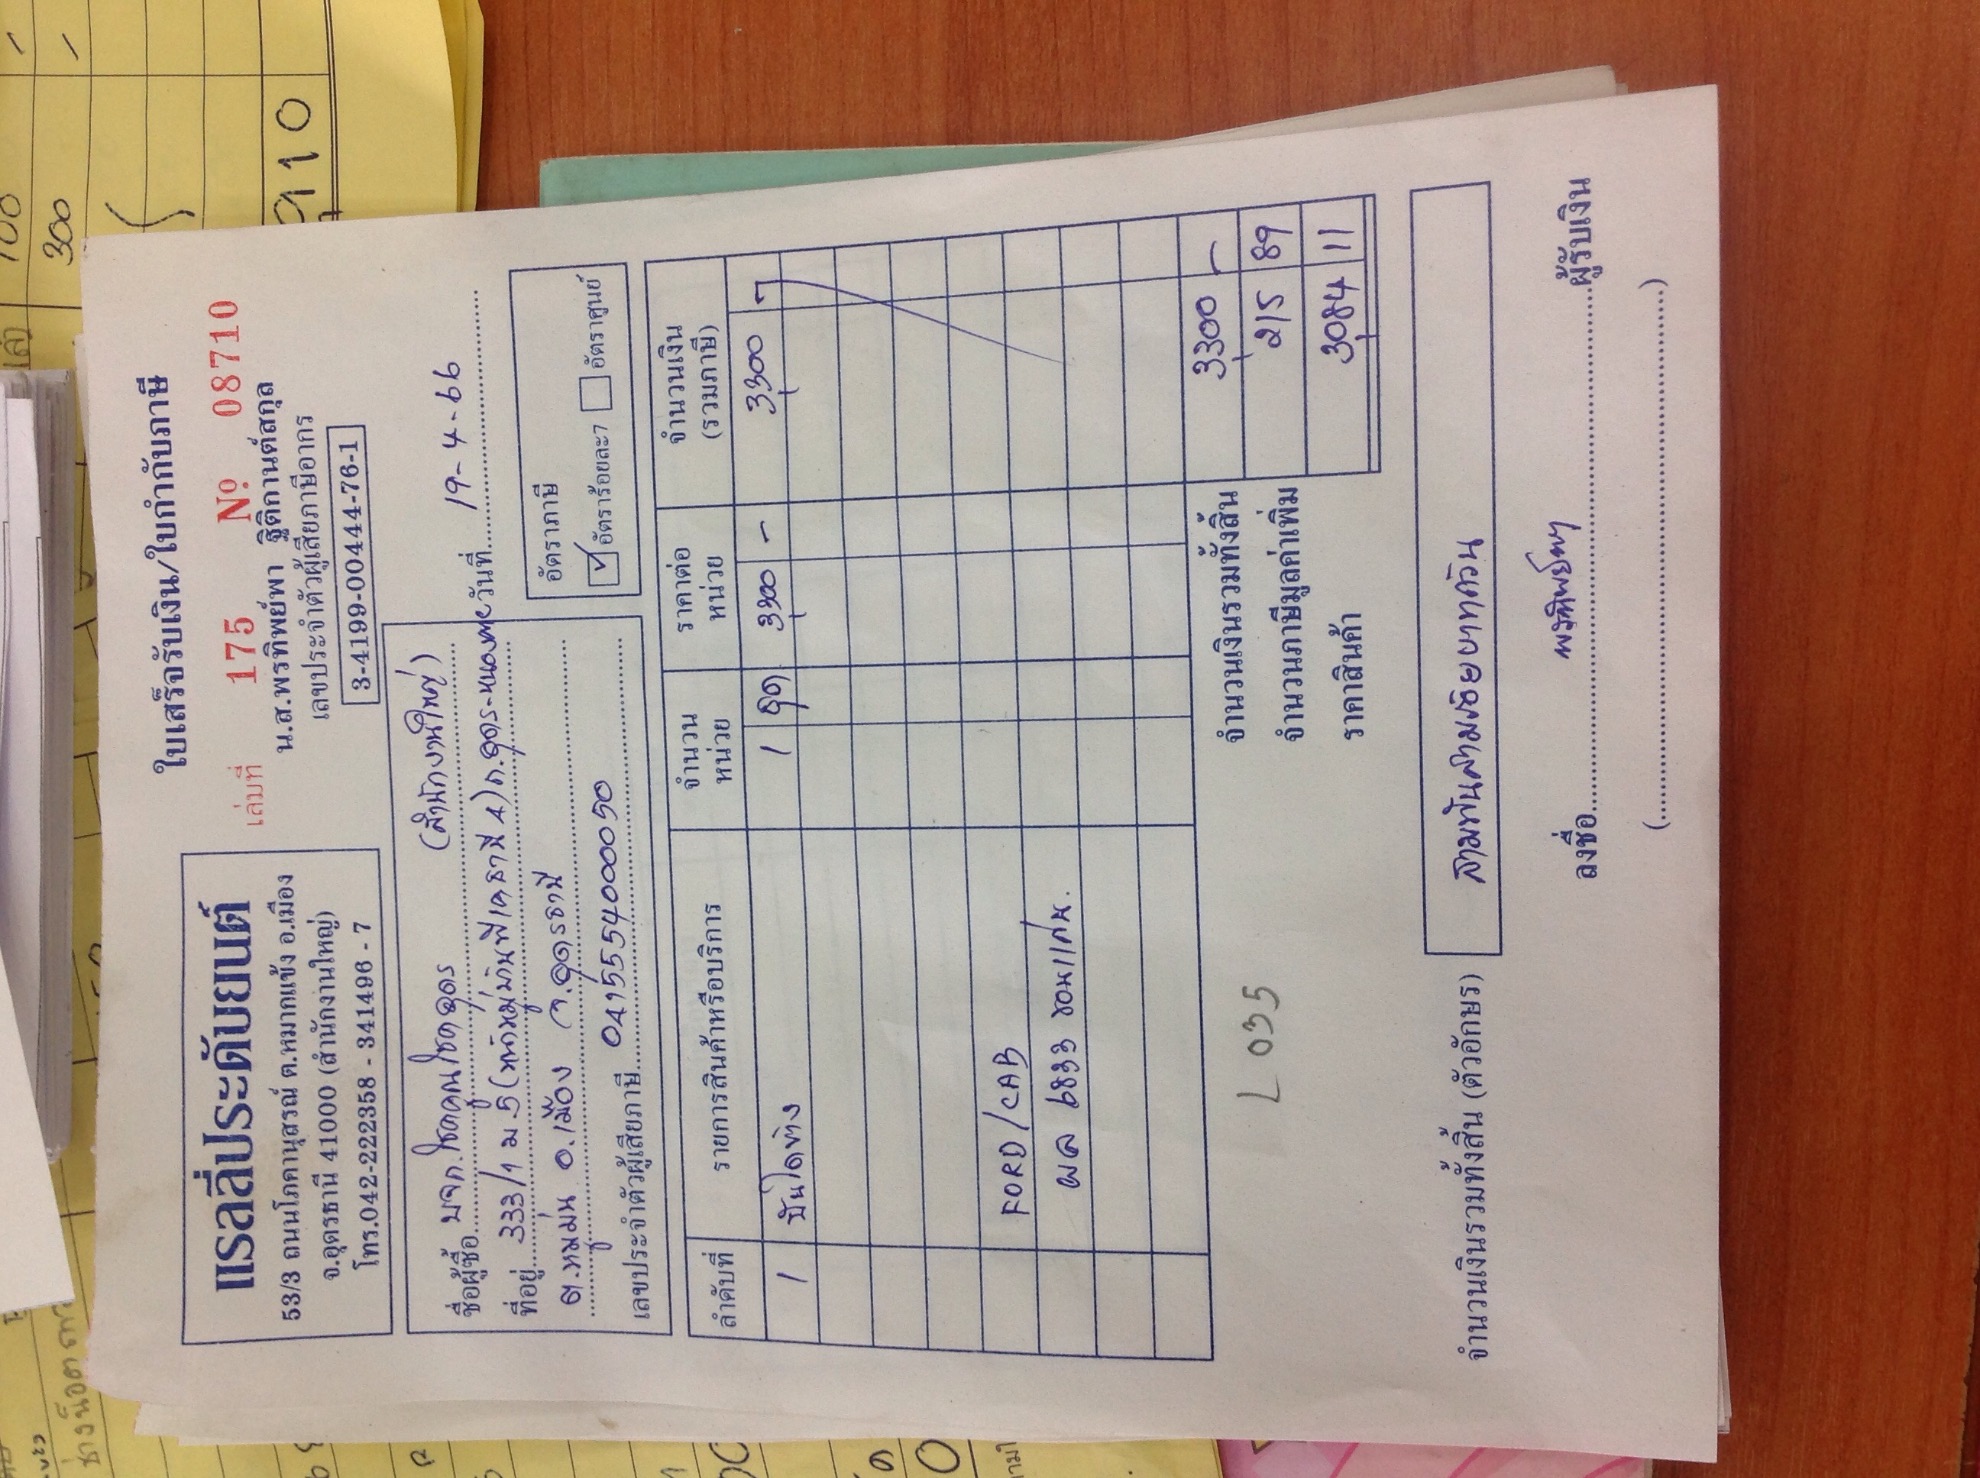 แรลลี่ประดับยนต์
53/3 ถนนโภคานุสรณ์ ต.หมากแข้ง อ.เมือง
จ.อุดรธานี 41000 (สำนักงานใหญ่)
โทร.042-222358 - 341496 - 7
ใบเสร็จรับเงิน/ใบกำกับภาษี
เล่มที่ 175 Nº 08710
น.ส.พรทิพย์พา ฐิติกานต์สกุล
เลขประจำตัวผู้เสียภาษีอากร
3-4199-00444-76-1
ชื่อผู้ซื้อ บจก.โชคคูณโชคอุดร (สำนักงานใหญ่)
วันที่ 19-4-66
ที่อยู่ 333/1 ม 5 (หน้าหมู่บ้านพิเดธานี 4) ถ.อุดร-หนอง
ต.หมูม่น อ.เมือง จ.อุดรธานี
เลขประจำตัวผู้เสียภาษี 0415554000050
อัตราภาษี
✓ อัตราร้อยละ7 อัตราศูนย์
ลำดับที่ รายการสินค้าหรือบริการ จำนวนหน่วย ราคาต่อหน่วย จำนวนเงิน (รวมภาษี)
1 บันไดข้าง 1 ชุด 3300 - 3300 -
FORD/CAB
ผล 6833 ขอนแก่น
จำนวนเงินรวมทั้งสิ้น 3300 -
จำนวนภาษีมูลค่าเพิ่ม 215 89
ราคาสินค้า 3084 11
L 035
จำนวนเงินรวมทั้งสิ้น (ตัวอักษร) สามพันสามร้อยบาทถ้วน
ลงชื่อ พรทิพย์พา ผู้รับเงิน
(                    )
100
300
910